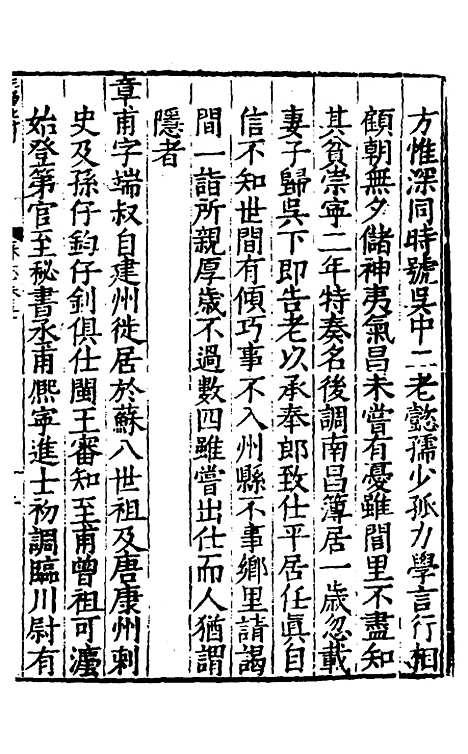 方惟深同時號吳中二老懿孺少孤力學言行相
顧朝無夕儲神夷氣昌未嘗有憂雖閭里不盡知
其貧崇寧二年特奏名後調南昌簿居一歲忽載
妻子歸吳下即告老以承奉郎致仕平居任眞自
信不知世間有傾巧事不入州縣不事鄉里請謁
間一詣所親厚歲不過數四雖嘗出仕而人猶謂
隱者
章甫字端叔自建州徙居於蘇八世祖及唐康州刺
史及孫仔鈞仔釗俱仕閩王審知至甫曾祖可瀍
始登第官至秘書丞甫熈寧進士初調臨川尉有